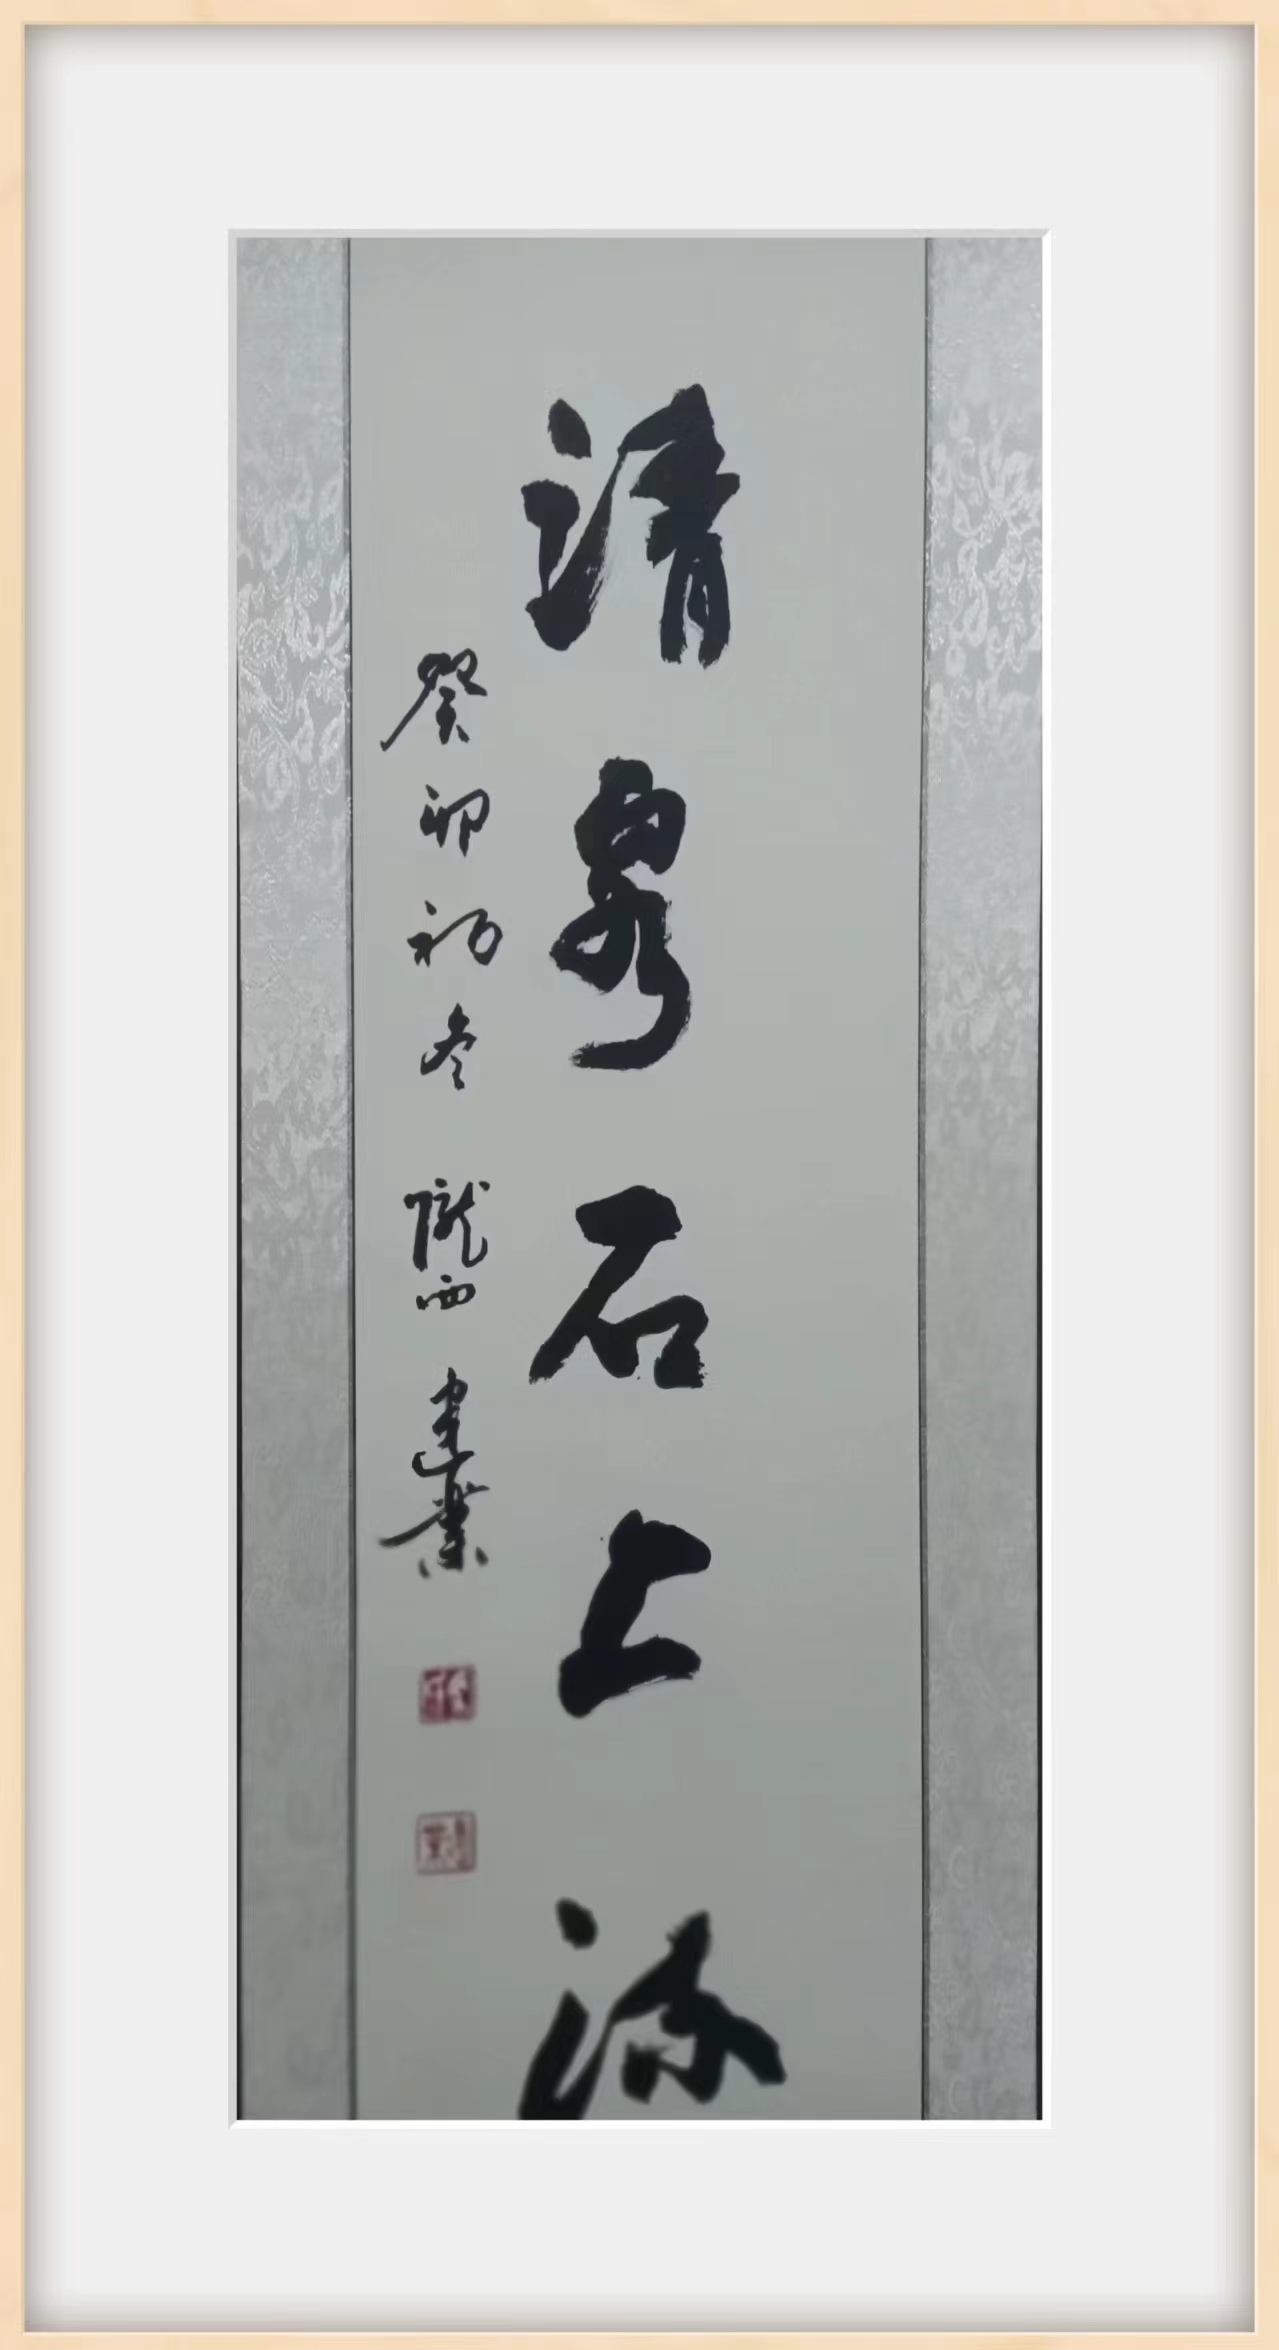 清泉石上流
癸卯初冬 陇西 建業